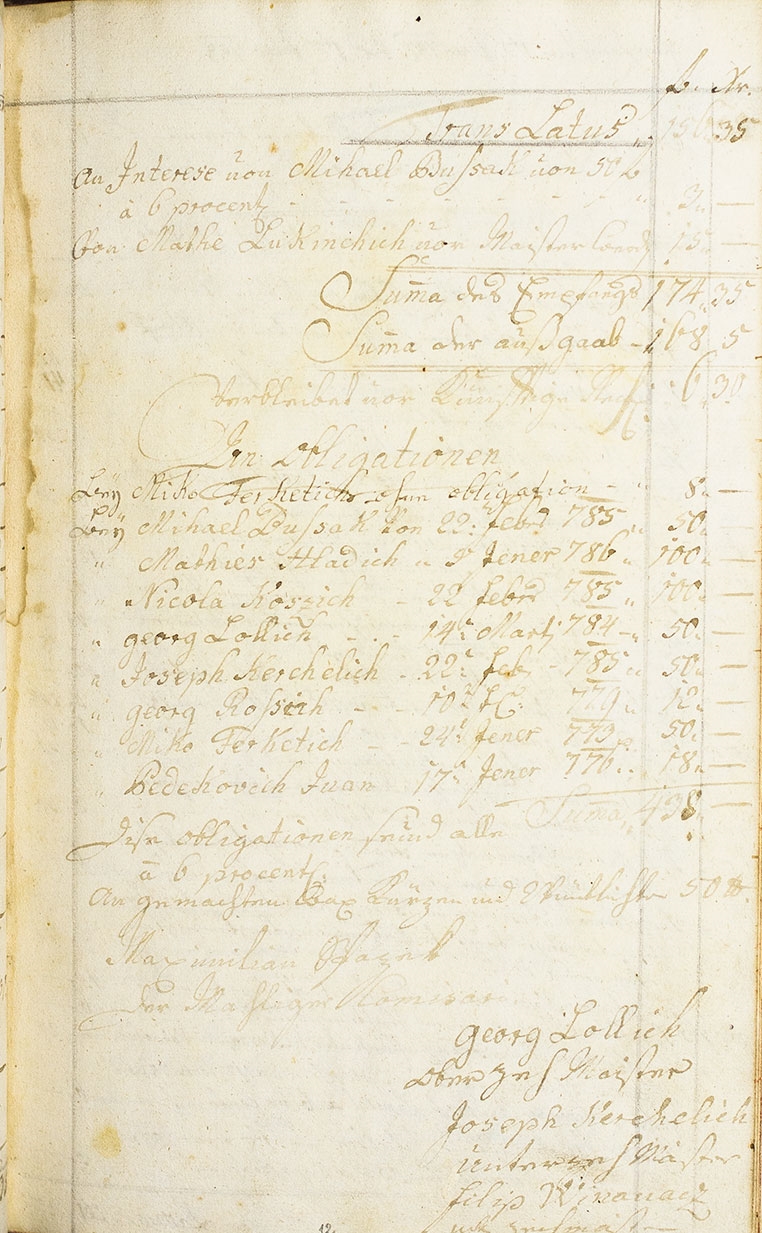 fl. Xr.
Trans Latus 156 35
An Interese von Mihael Bussak von 50 fl
à 6 procent 3 —
Von Mathe Lukinchich vor Maister 15 —
Summa des Empfangs 174 35
Summa der außgaab 168 5
Verbleibet vor Künftige 6 30
In Obligationen
Bey Miko Ferketich ohne obligation 8 —
Bey Mihael Bussak von 22: febr 785 50 —
" Mathies Hladich " 9 Jener 786 100 —
" Nicola Koszich - 22 febr 785 100 —
" georg Lollich - - 14: Martj 784 50 —
" Joseph Kerchelich - 22: feb 785 50 —
" georg Rossich - - 10: 779 12 —
" Miko Ferketich - - 24: Jener 773 50 —
" Bedekovich Juan 17: Jener 776 18 —
Summa 438 —
Dise obligationen seind alle
à 6 procent
An gemachten Wax Kürzen und 50 ℔
Maximilian
Der
georg Lollich
Ober zeh Maister
Joseph Kerchelich
unter zeh Maister
filip
12.